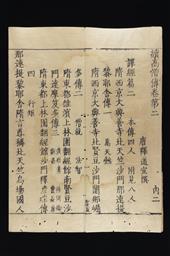 續高僧傳卷第二　內二
唐釋道宣撰
譯經篇二　本傳四人　附見八人
隋西京大興善寺北天竺沙門那連提
黎耶舍傳一　萬天懿
隋西京大興善寺北賢豆沙門闍那崛
多傳二　僧就　法智
隋東都雒濱上林園翻經館南賢豆沙
門達摩笈多傳三
隋東都上林園翻經館沙門釋彥琮傳
四　行矩
那連提黎耶舍隋言尊稱北天竺烏場國人